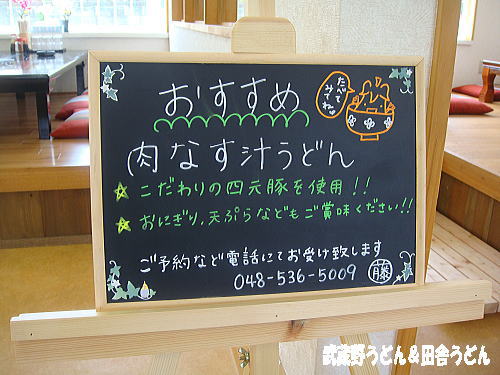 おすすめ
たべて
みてね
肉なす汁うどん
こだわりの四元豚を使用!!
おにぎり,天ぷらなどもご賞味ください!!
ご予約など電話にてお受け致します
048-536-5009
藤
武蔵野うどん&田舎うどん